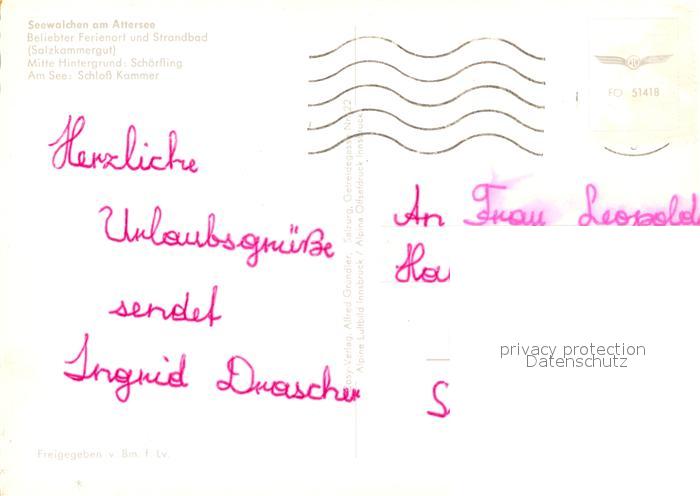 Seewalchen am Attersee
Beliebter Ferienort und Strandbad
(Salzkammergut)
Mitte Hintergrund: Schörfling
Am See: Schloß Kammer
FO 51418
Herzliche
Urlaubsgrüße
sendet
Ingrid Drascher
Verlag Alfred Gründler, Salzburg, Getreidegasse Nr. 22
Alpine Luftbild Innsbruck / Alpine Offsetdruck Innsbruck
An Frau Leopold
Ha
S
privacy protection
Datenschutz
Freigegeben v. Bm. f. Lv.